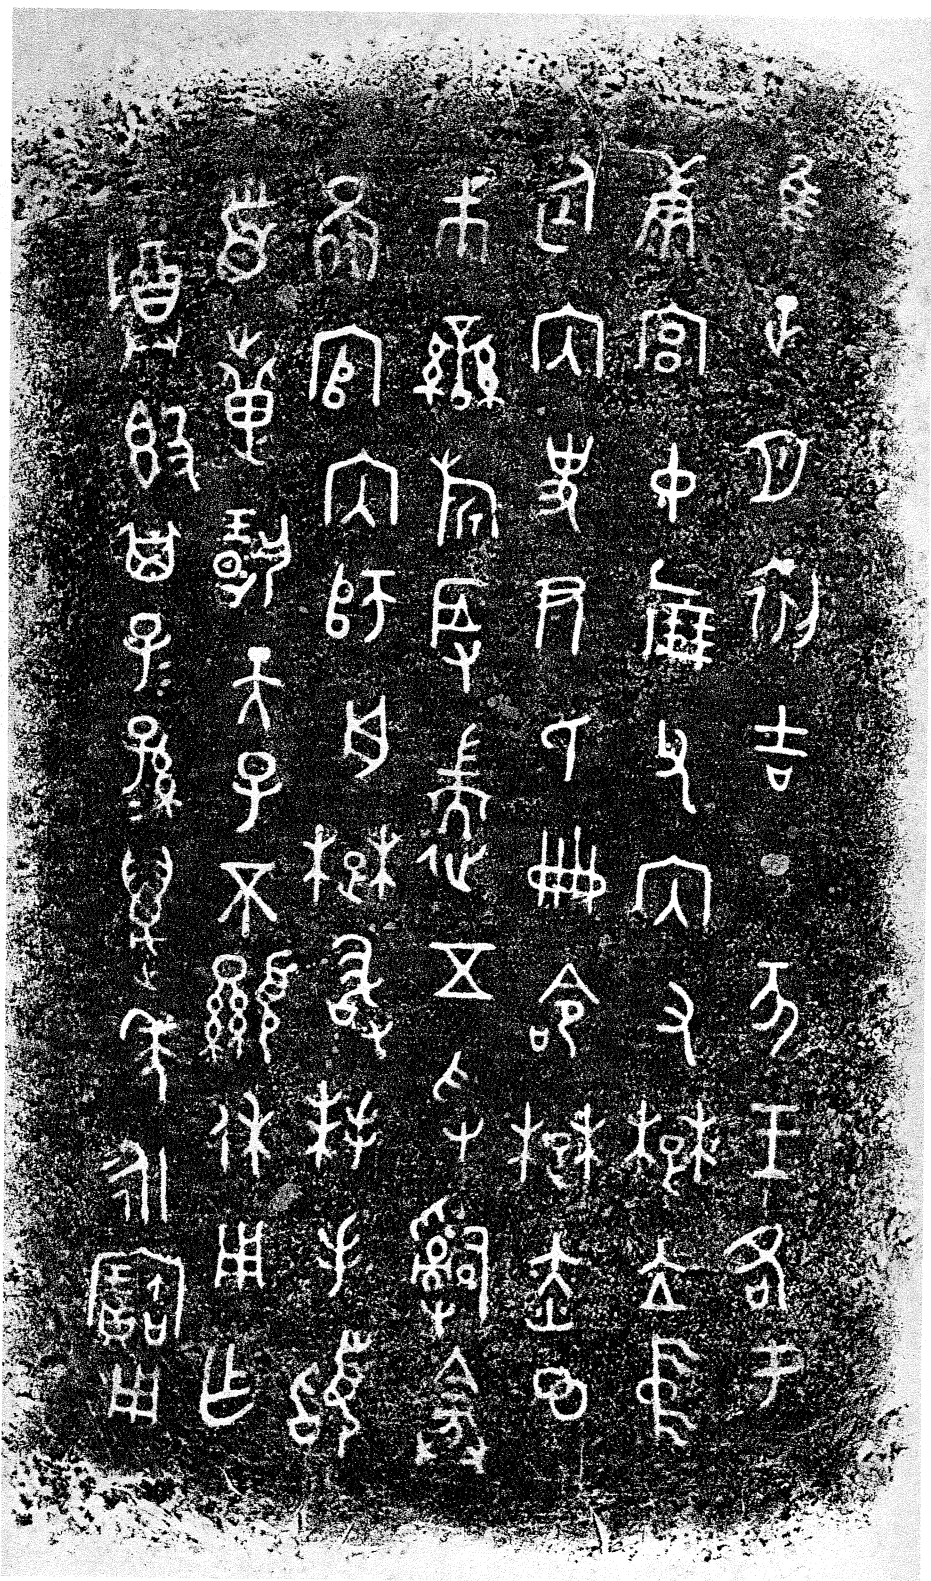 隹正月初吉丁亥王各于
康宮中倗父內又楚立中
廷內史尹氏冊命楚赤
巿䜌旂取五寽𤔲
啚官內師舟楚敢拜手𩒨
首疐揚天子不顯休用乍
尊簋其子=孫=萬年永寶用